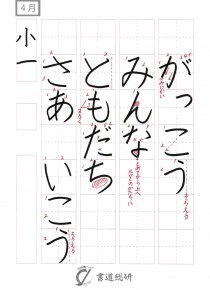 4月
がっこう
みんな
ともだち
さあ いこう
小一
書道総研